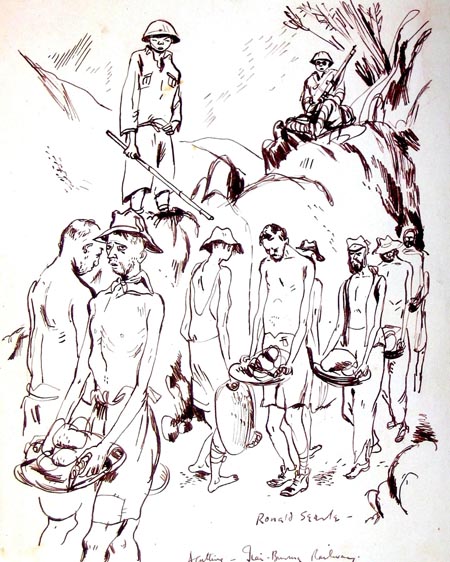 Ronald Searle –
A cutting – Thai-Burma Railway.